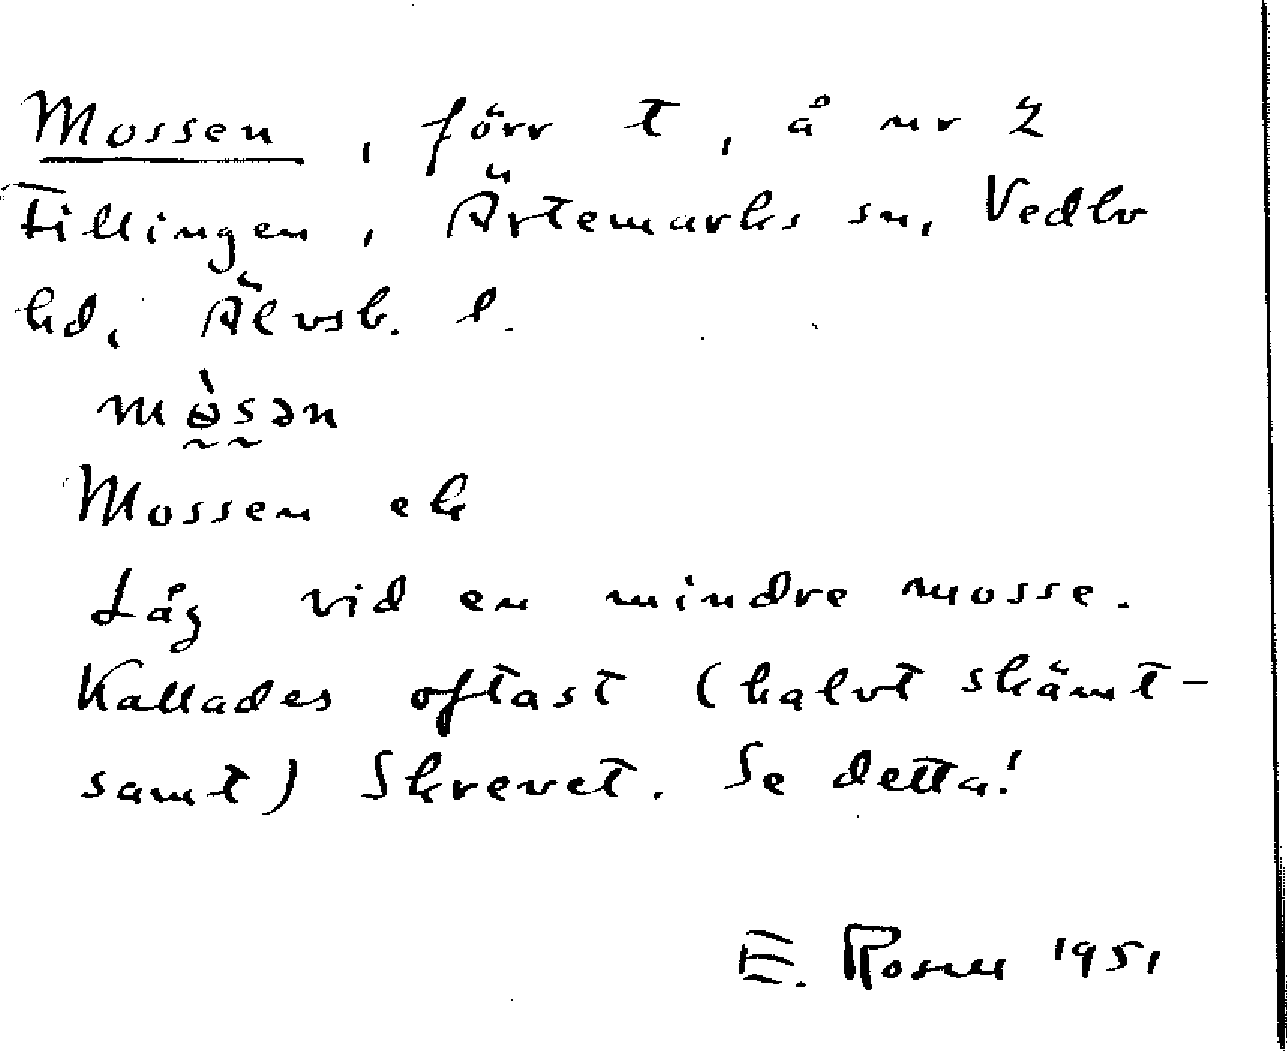 Mossen, förr t, å nr 2
Fillingen, Ärtemarks sn, Vedbo
hd, Älvsb. l.
Mossen ek
Låg vid en mindre mosse.
Kallades oftast (halvt skämt-
samt) Skrevet. Se detta!
E. Rosell 1951